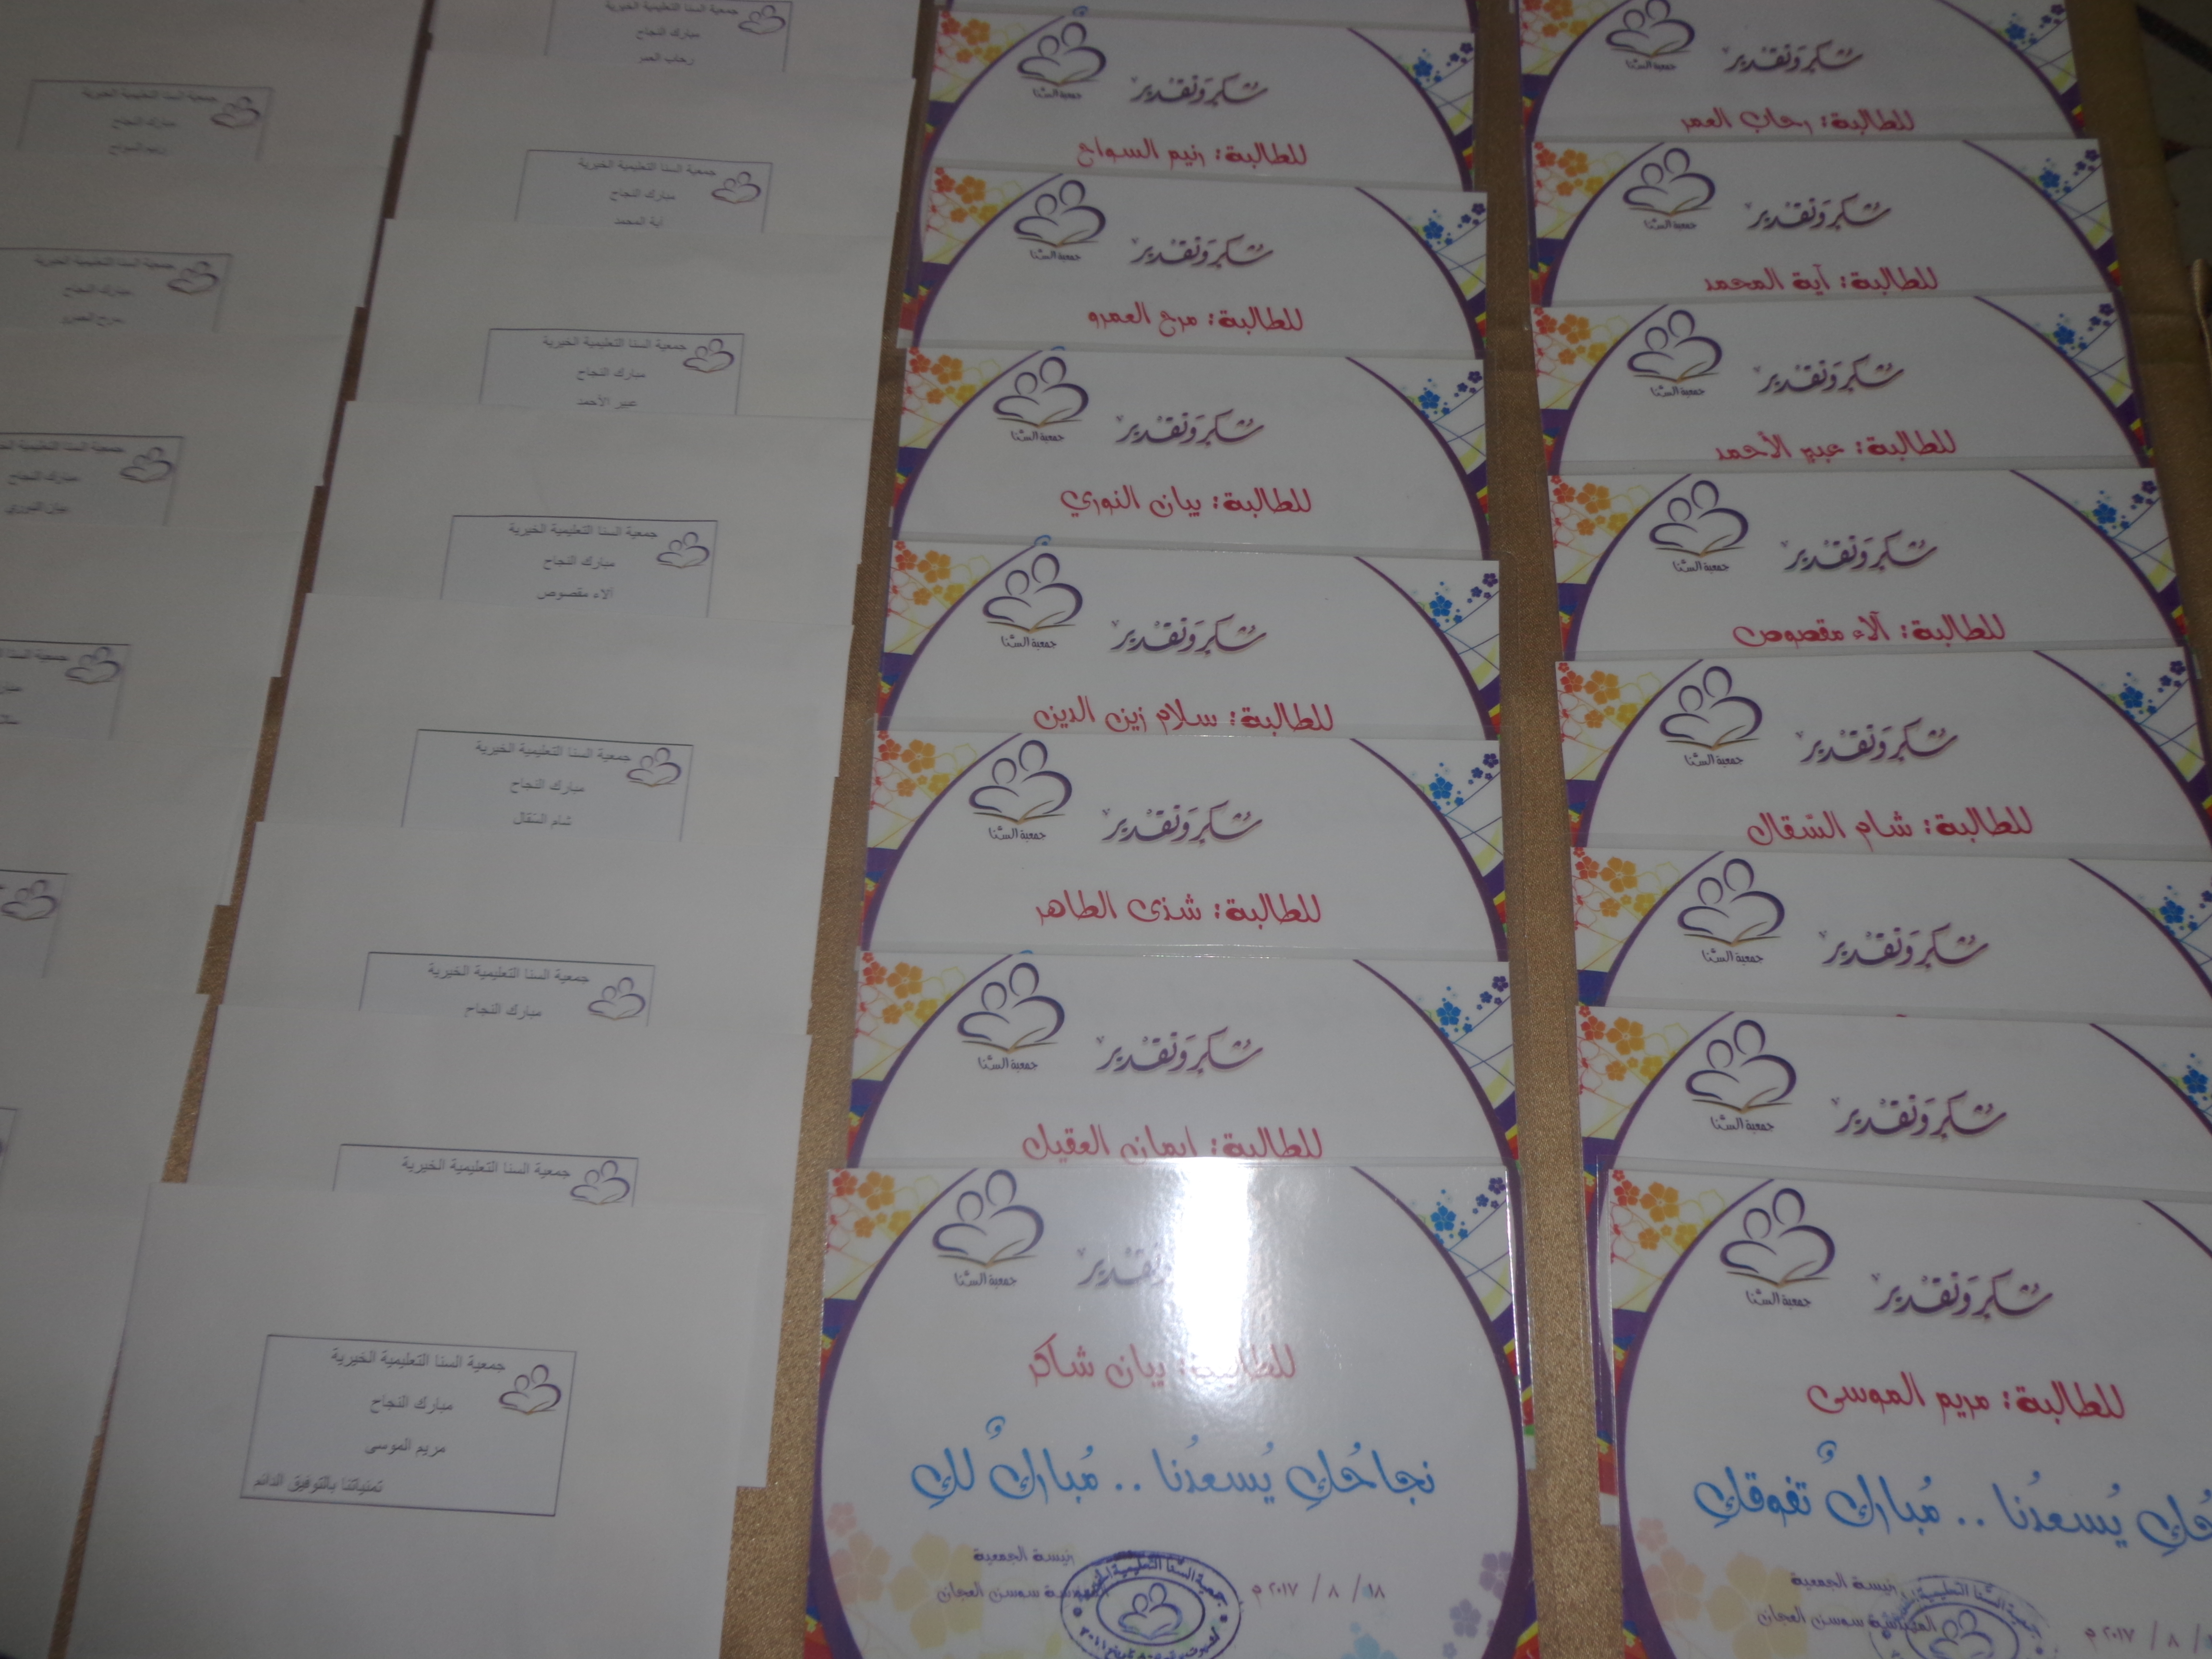 جمعية السنا
شكر وتقدير
للطالبة: رحاب العمر
جمعية السنا
شكر وتقدير
للطالبة: آية المحمد
جمعية السنا
شكر وتقدير
للطالبة: عبير الأحمد
جمعية السنا
شكر وتقدير
للطالبة: آلاء مقصوص
جمعية السنا
شكر وتقدير
للطالبة: شام السقال
جمعية السنا
شكر وتقدير
جمعية السنا
شكر وتقدير
جمعية السنا
شكر وتقدير
للطالبة: مريم الموسى
يُسعدُنا .. مُباركٌ تفوقكِ
رئيسة الجمعية
سوسن العجان
٢٠١٧ م / ٨ /
جمعية السنا
شكر وتقدير
للطالبة: رنيم السواح
جمعية السنا
شكر وتقدير
للطالبة: مرح العمرو
جمعية السنا
شكر وتقدير
للطالبة: بيان النوري
جمعية السنا
شكر وتقدير
للطالبة: سلام زين الدين
جمعية السنا
شكر وتقدير
للطالبة: شذى الطاهر
جمعية السنا
شكر وتقدير
للطالبة: ايمان العقيل
جمعية السنا
للطالبة: بيان شاكر
نجاحُكِ يُسعدُنا .. مُباركٌ لكِ
رئيسة الجمعية
سوسن العجان
١٨ / ٨ / ٢٠١٧ م
جمعية السنا التعليمية الخيرية
مبارك النجاح
رحاب العمر
جمعية السنا التعليمية الخيرية
مبارك النجاح
آية المحمد
جمعية السنا التعليمية الخيرية
مبارك النجاح
عبير الأحمد
جمعية السنا التعليمية الخيرية
مبارك النجاح
آلاء مقصوص
جمعية السنا التعليمية الخيرية
مبارك النجاح
شام السقال
جمعية السنا التعليمية الخيرية
مبارك النجاح
جمعية السنا التعليمية الخيرية
جمعية السنا التعليمية الخيرية
مبارك النجاح
مريم الموسى
تمنياتنا بالتوفيق الدائم
جمعية السنا التعليمية الخيرية
مبارك النجاح
رنيم السواح
جمعية السنا التعليمية الخيرية
مبارك النجاح
جمعية السنا التعليمية
مبارك النجاح
بيان النوري
جمعية السنا التعليمية